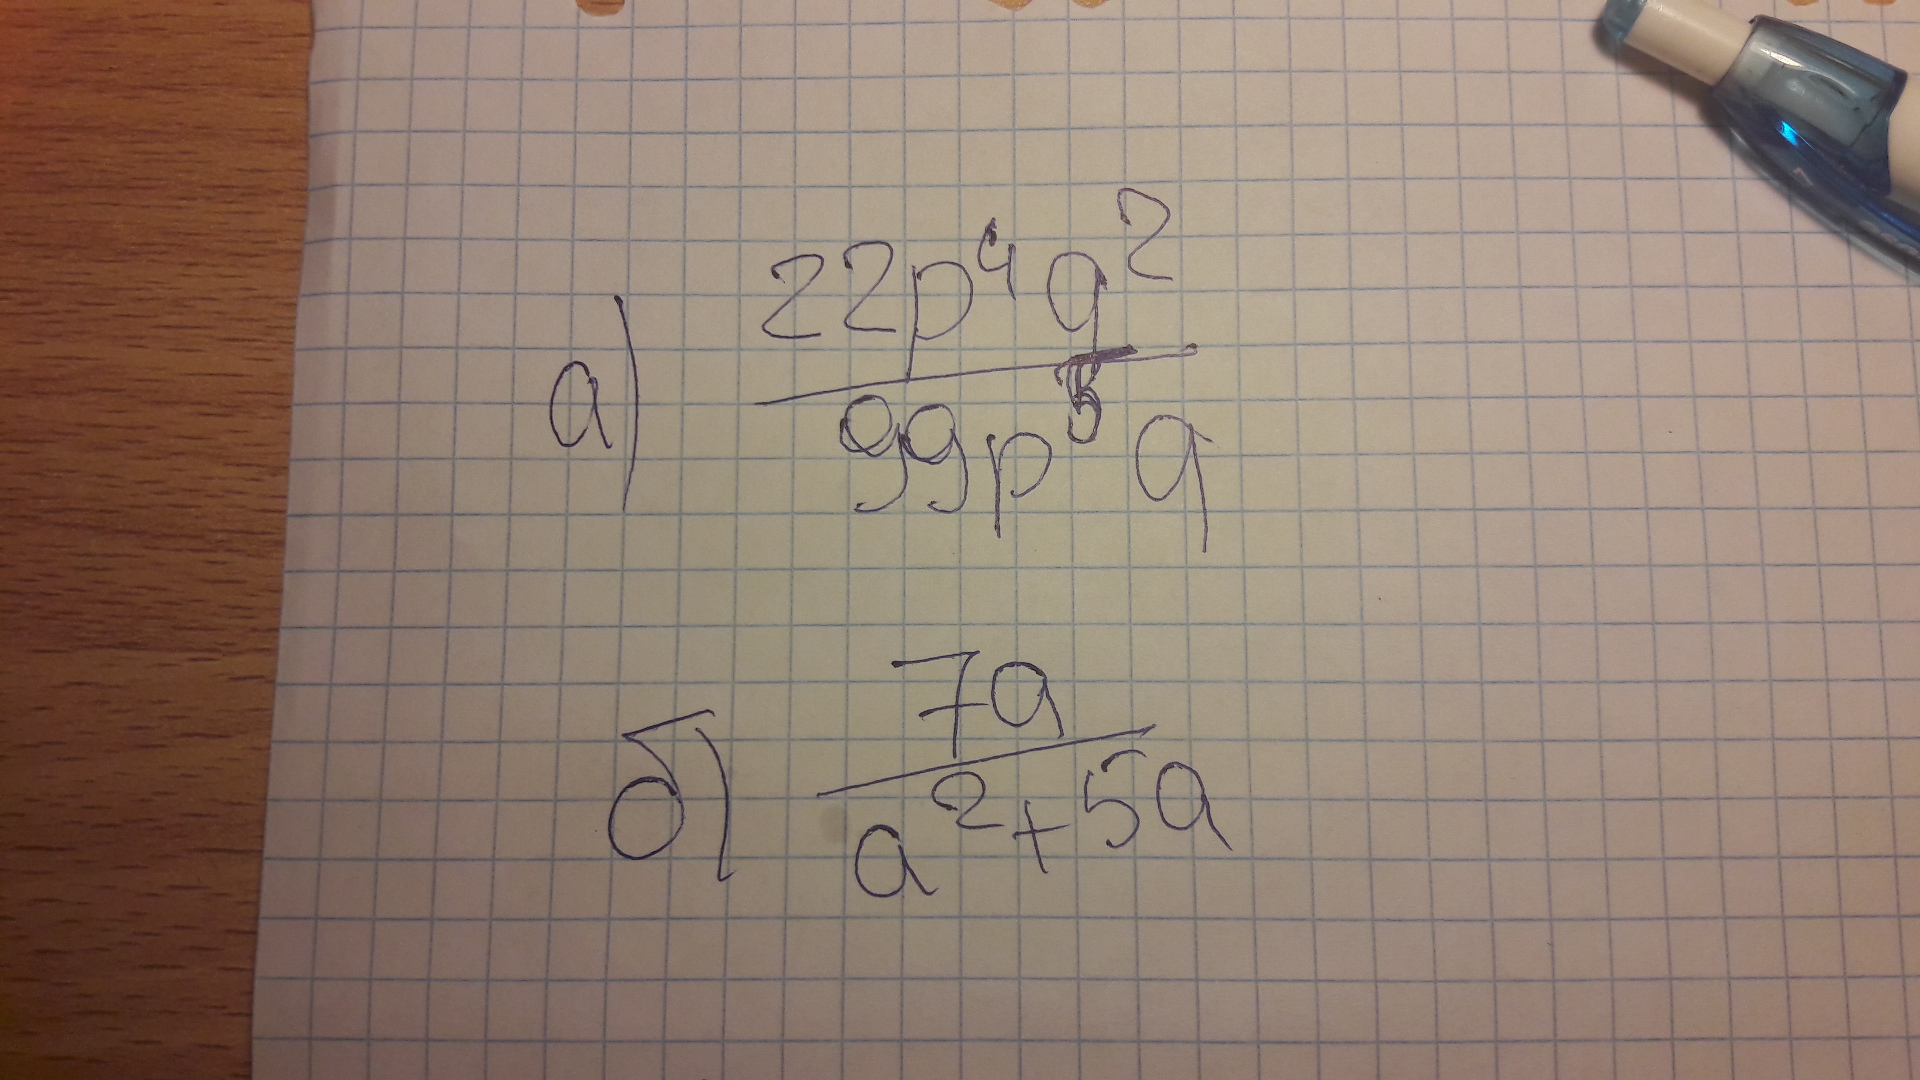 а) 22p⁴q²
99p⁵q
б) 7a
a²+5a